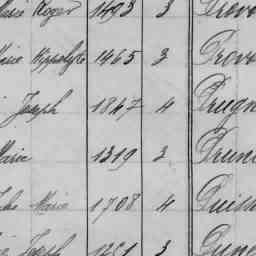 Marie Roger 1493 3 Prov
Marie Hippolyte 1465 3 Prov
Joseph 1847 4 Prugn
Marie 1319 3 Prun
Jules Marie 1708 4 Puiss
Joseph 1251 3